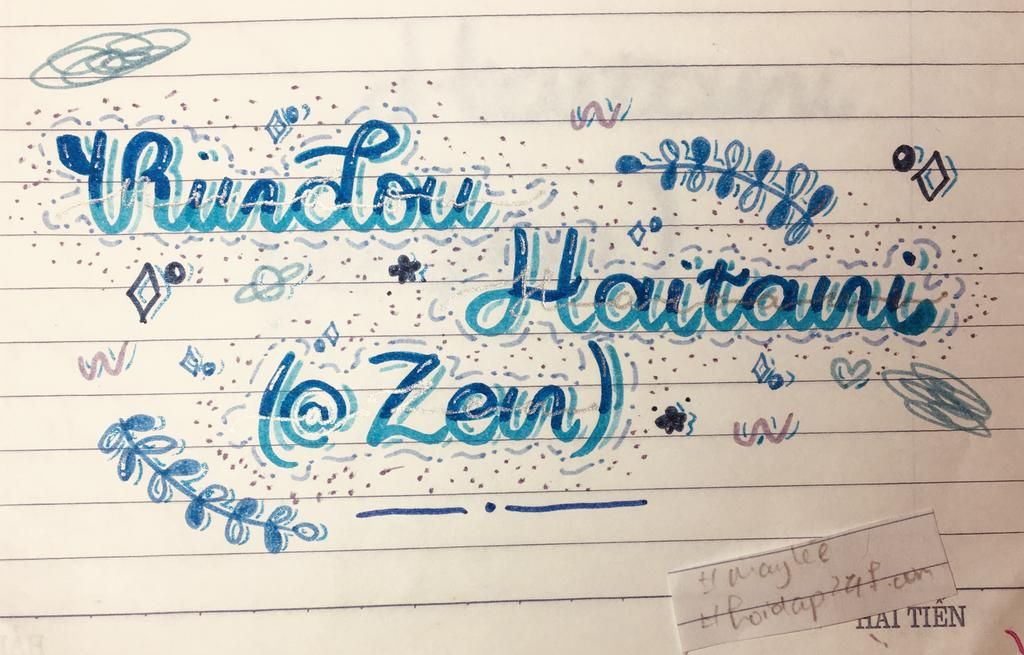 Rindou
Haitani
(@Zen)
#maylee
#hoidap247.com
HẢI TIẾN